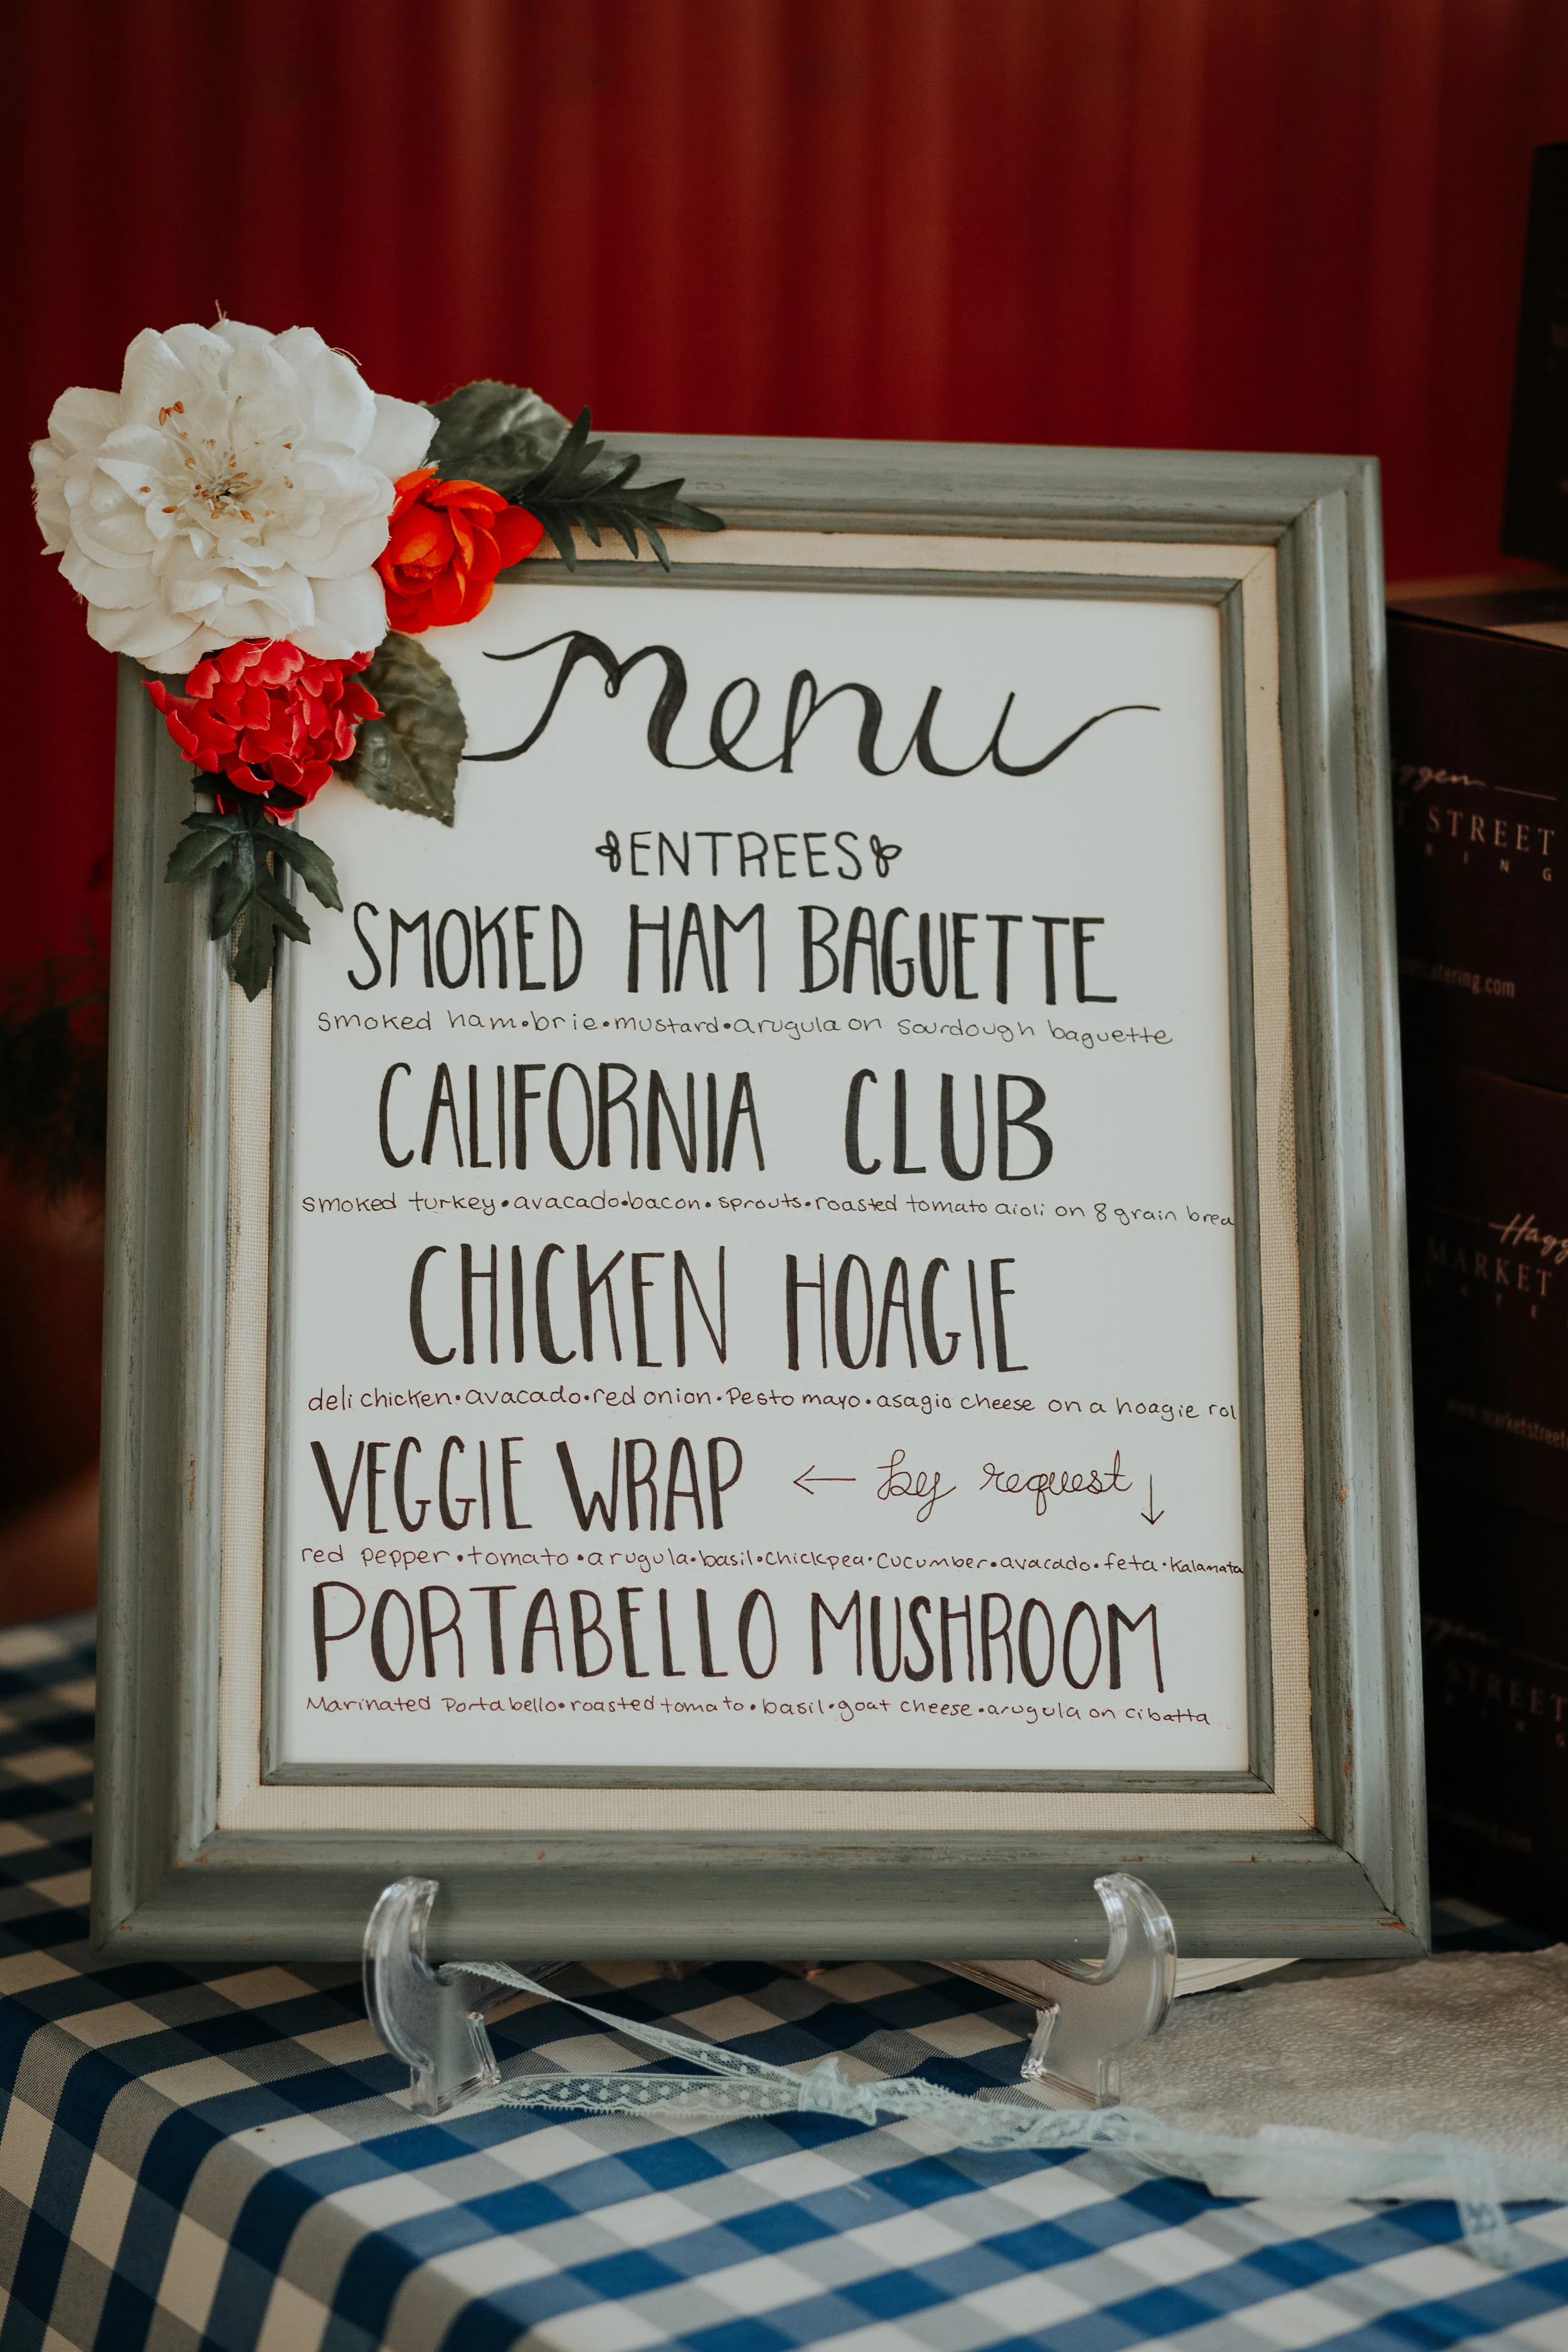 Menu
ENTREES
SMOKED HAM BAGUETTE
smoked ham•brie•mustard•arugula on sourdough baguette
CALIFORNIA CLUB
smoked turkey•avacado•bacon•sprouts•roasted tomato aioli on 8 grain brea
CHICKEN HOAGIE
deli chicken•avacado•red onion•Pesto mayo•asagio cheese on a hoagie rol
VEGGIE WRAP ← by request ↓
red pepper•tomato•arugula•basil•chickpea•cucumber•avacado•feta•kalamata
PORTABELLO MUSHROOM
Marinated Portabello•roasted tomato•basil•goat cheese•arugula on cibatta
STREET
Hagg
MARKET
STREET